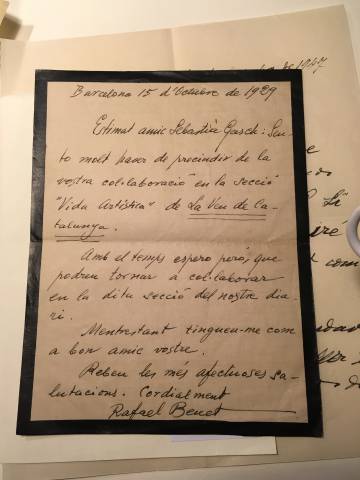 Barcelona 15 d'Octubre de 1929
Estimat amic Sebastià Gasch: Sen-
to molt haver de precindir de la
vostra col·laboració en la secció
"Vida Artística" de La Veu de Ca-
talunya.
Amb el temps espero però, que
podreu tornar a col·laborar
en la dita secció del nostre dia-
ri.
Mentrestant tingueu-me com
a bon amic vostre.
Rebeu les més afectuoses sa-
lutacions. Cordialment
Rafael Benet